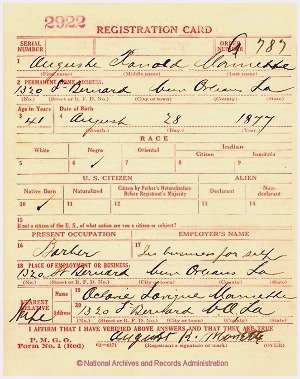 2922
REGISTRATION CARD
SERIAL NUMBER ORDER NUMBER 787
1 Auguste
(First name) (Middle name) (Last name)
2 PERMANENT HOME ADDRESS:
1320 St Bernard New Orleans La
(No.) (Street or R. F. D. No.) (City or town) (County) (State)
Age in Years Date of Birth
3 41 4 August 28 1877
(Month.) (Day.) (Year.)
RACE
White Negro Oriental Indian
Citizen Noncitizen
5 6 ✓ 7 8 9
U. S. CITIZEN ALIEN
Native Born Naturalized Citizen by Father's Naturalization Before Registrant's Majority Declarant Non-declarant
10 ✓ 11 12 13 14
15
If not a citizen of the U. S., of what nation are you a citizen or subject?
PRESENT OCCUPATION EMPLOYER'S NAME
16 Barber 17 In business for self
18 PLACE OF EMPLOYMENT OR BUSINESS:
1320 St Bernard New Orleans La
(No.) (Street or R. F. D. No.) (City or town) (County) (State)
NEAREST RELATIVE Name 19
Wife Address 20 1320 St Bernard N.O. La
(No.) (Street or R. F. D. No.) (City or town) (County) (State)
I AFFIRM THAT I HAVE VERIFIED ABOVE ANSWERS AND THAT THEY ARE TRUE
P. M. G. O.
Form No. 1 (Red) August
© National Archives and Records Administration